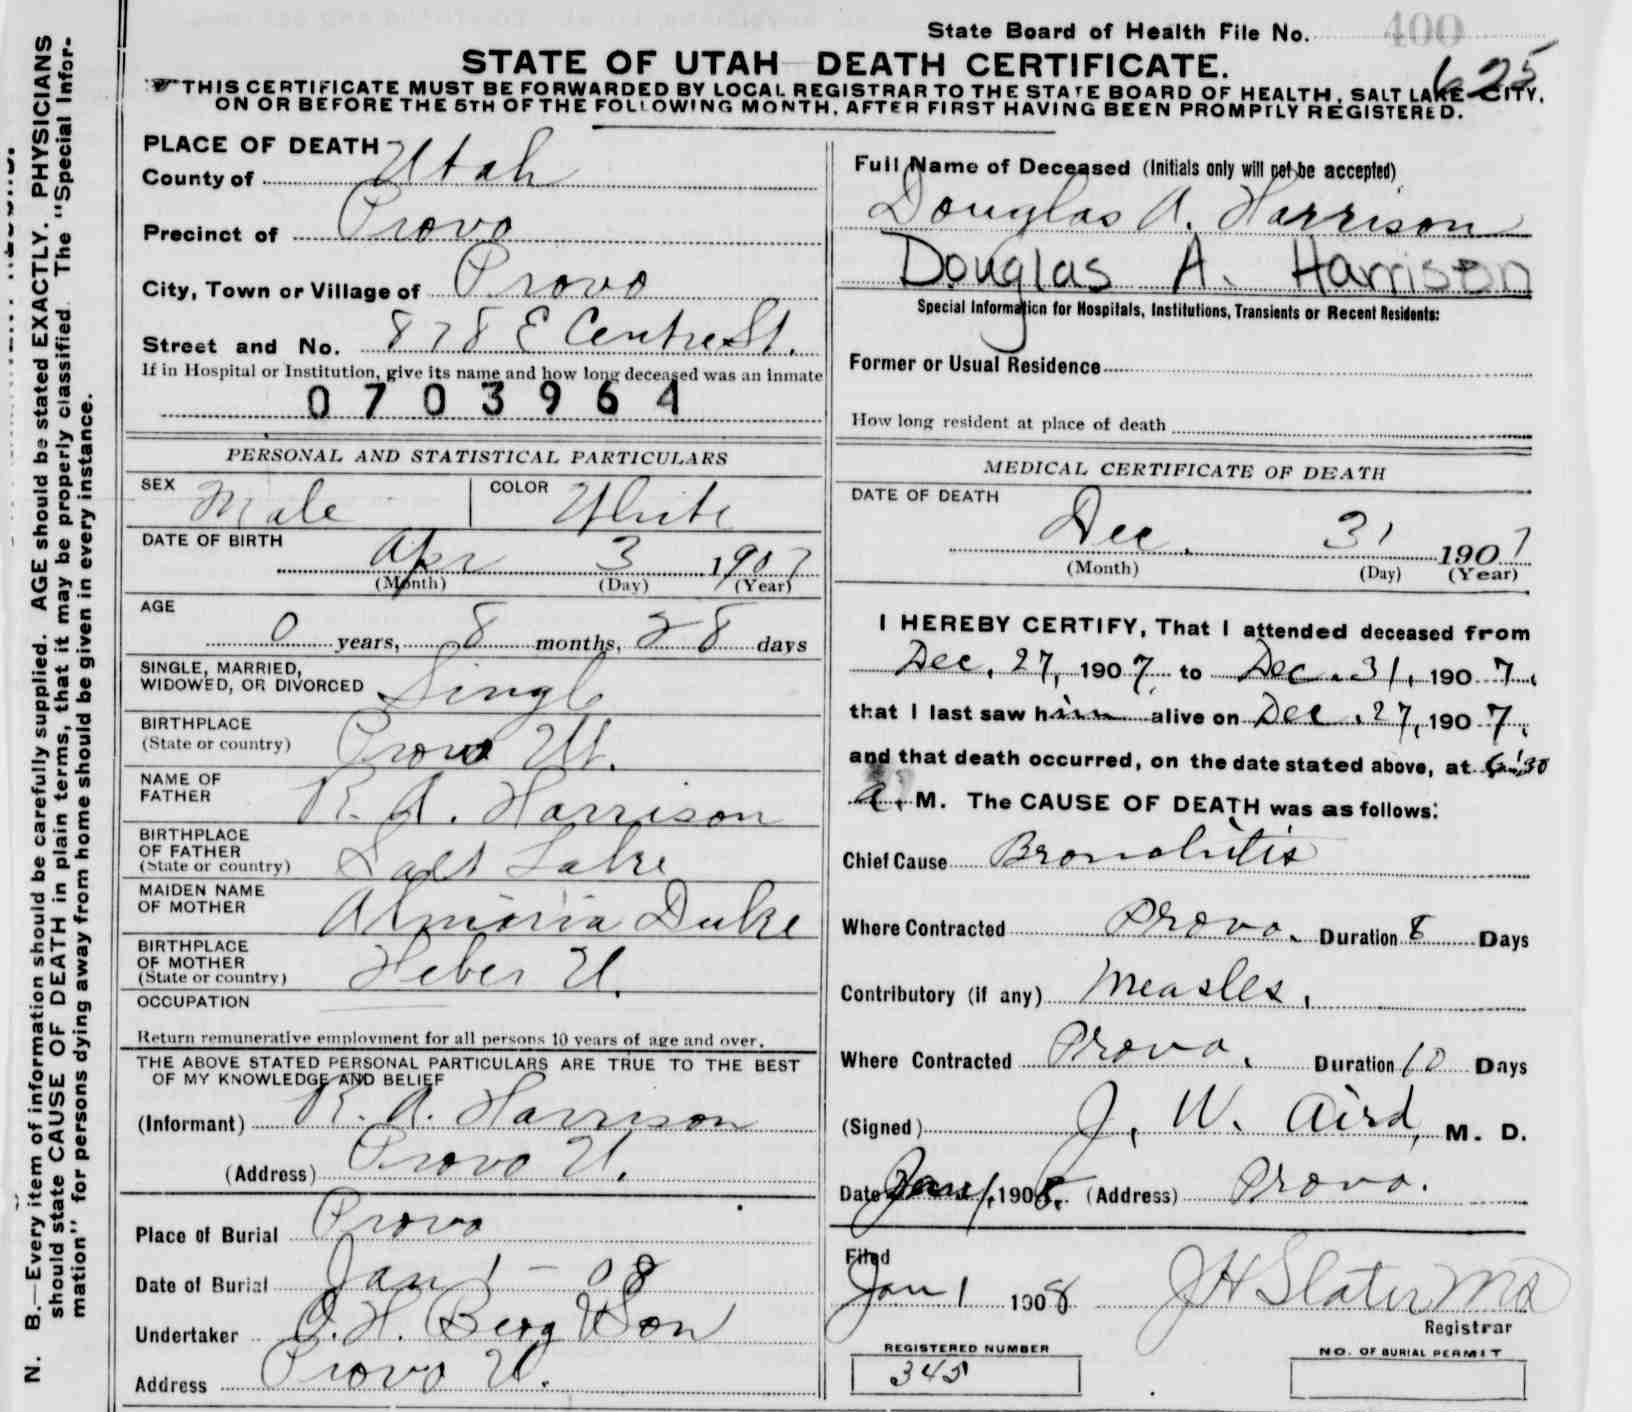 State Board of Health File No. 400
625
STATE OF UTAH DEATH CERTIFICATE.
THIS CERTIFICATE MUST BE FORWARDED BY LOCAL REGISTRAR TO THE STATE BOARD OF HEALTH, SALT LAKE CITY,
ON OR BEFORE THE 5TH OF THE FOLLOWING MONTH, AFTER FIRST HAVING BEEN PROMPTLY REGISTERED.
N. B.—Every item of information should be carefully supplied. AGE should be stated EXACTLY. PHYSICIANS
should state CAUSE OF DEATH in plain terms, that it may be properly classified. The "Special Infor-
mation" for persons dying away from home should be given in every instance.
PLACE OF DEATH
County of Utah
Precinct of Provo
City, Town or Village of Provo
Street and No. 878 E Centre St.
If in Hospital or Institution, give its name and how long deceased was an inmate
0703964
PERSONAL AND STATISTICAL PARTICULARS
SEX Male COLOR White
DATE OF BIRTH Apr 3 1907
(Month) (Day) (Year)
AGE
0 years, 8 months, 28 days
SINGLE, MARRIED,
WIDOWED, OR DIVORCED Single
BIRTHPLACE
(State or country) Provo Ut.
NAME OF
FATHER R. A. Harrison
BIRTHPLACE
OF FATHER
(State or country) Salt Lake
MAIDEN NAME
OF MOTHER Duke
BIRTHPLACE
OF MOTHER
(State or country) Heber U.
OCCUPATION
Return remunerative employment for all persons 10 years of age and over.
THE ABOVE STATED PERSONAL PARTICULARS ARE TRUE TO THE BEST
OF MY KNOWLEDGE AND BELIEF
(Informant) R. A. Harrison
(Address) Provo U.
Place of Burial Provo
Date of Burial Jan 1 - 08
Undertaker O. H. Berg & Son
Address Provo U.
Full Name of Deceased (Initials only will not be accepted)
Douglas A. Harrison
Douglas A. Harrison
Special Information for Hospitals, Institutions, Transients or Recent Residents:
Former or Usual Residence
How long resident at place of death
MEDICAL CERTIFICATE OF DEATH
DATE OF DEATH
Dec. 31 1907
(Month) (Day) (Year)
I HEREBY CERTIFY, That I attended deceased from
Dec. 27, 1907, to Dec. 31, 1907,
that I last saw him alive on Dec. 27, 1907,
and that death occurred, on the date stated above, at
a. M. The CAUSE OF DEATH was as follows:
Chief Cause Bronchitis
Where Contracted Provo. Duration 8 Days
Contributory (if any) Measles,
Where Contracted Provo, Duration 10 Days
(Signed) J. W. Aird, M. D.
Date Jan 1, 1908. (Address) Provo.
Filed
Jan 1 1908 J H Slater MD
Registrar
REGISTERED NUMBER
345
NO. OF BURIAL PERMIT